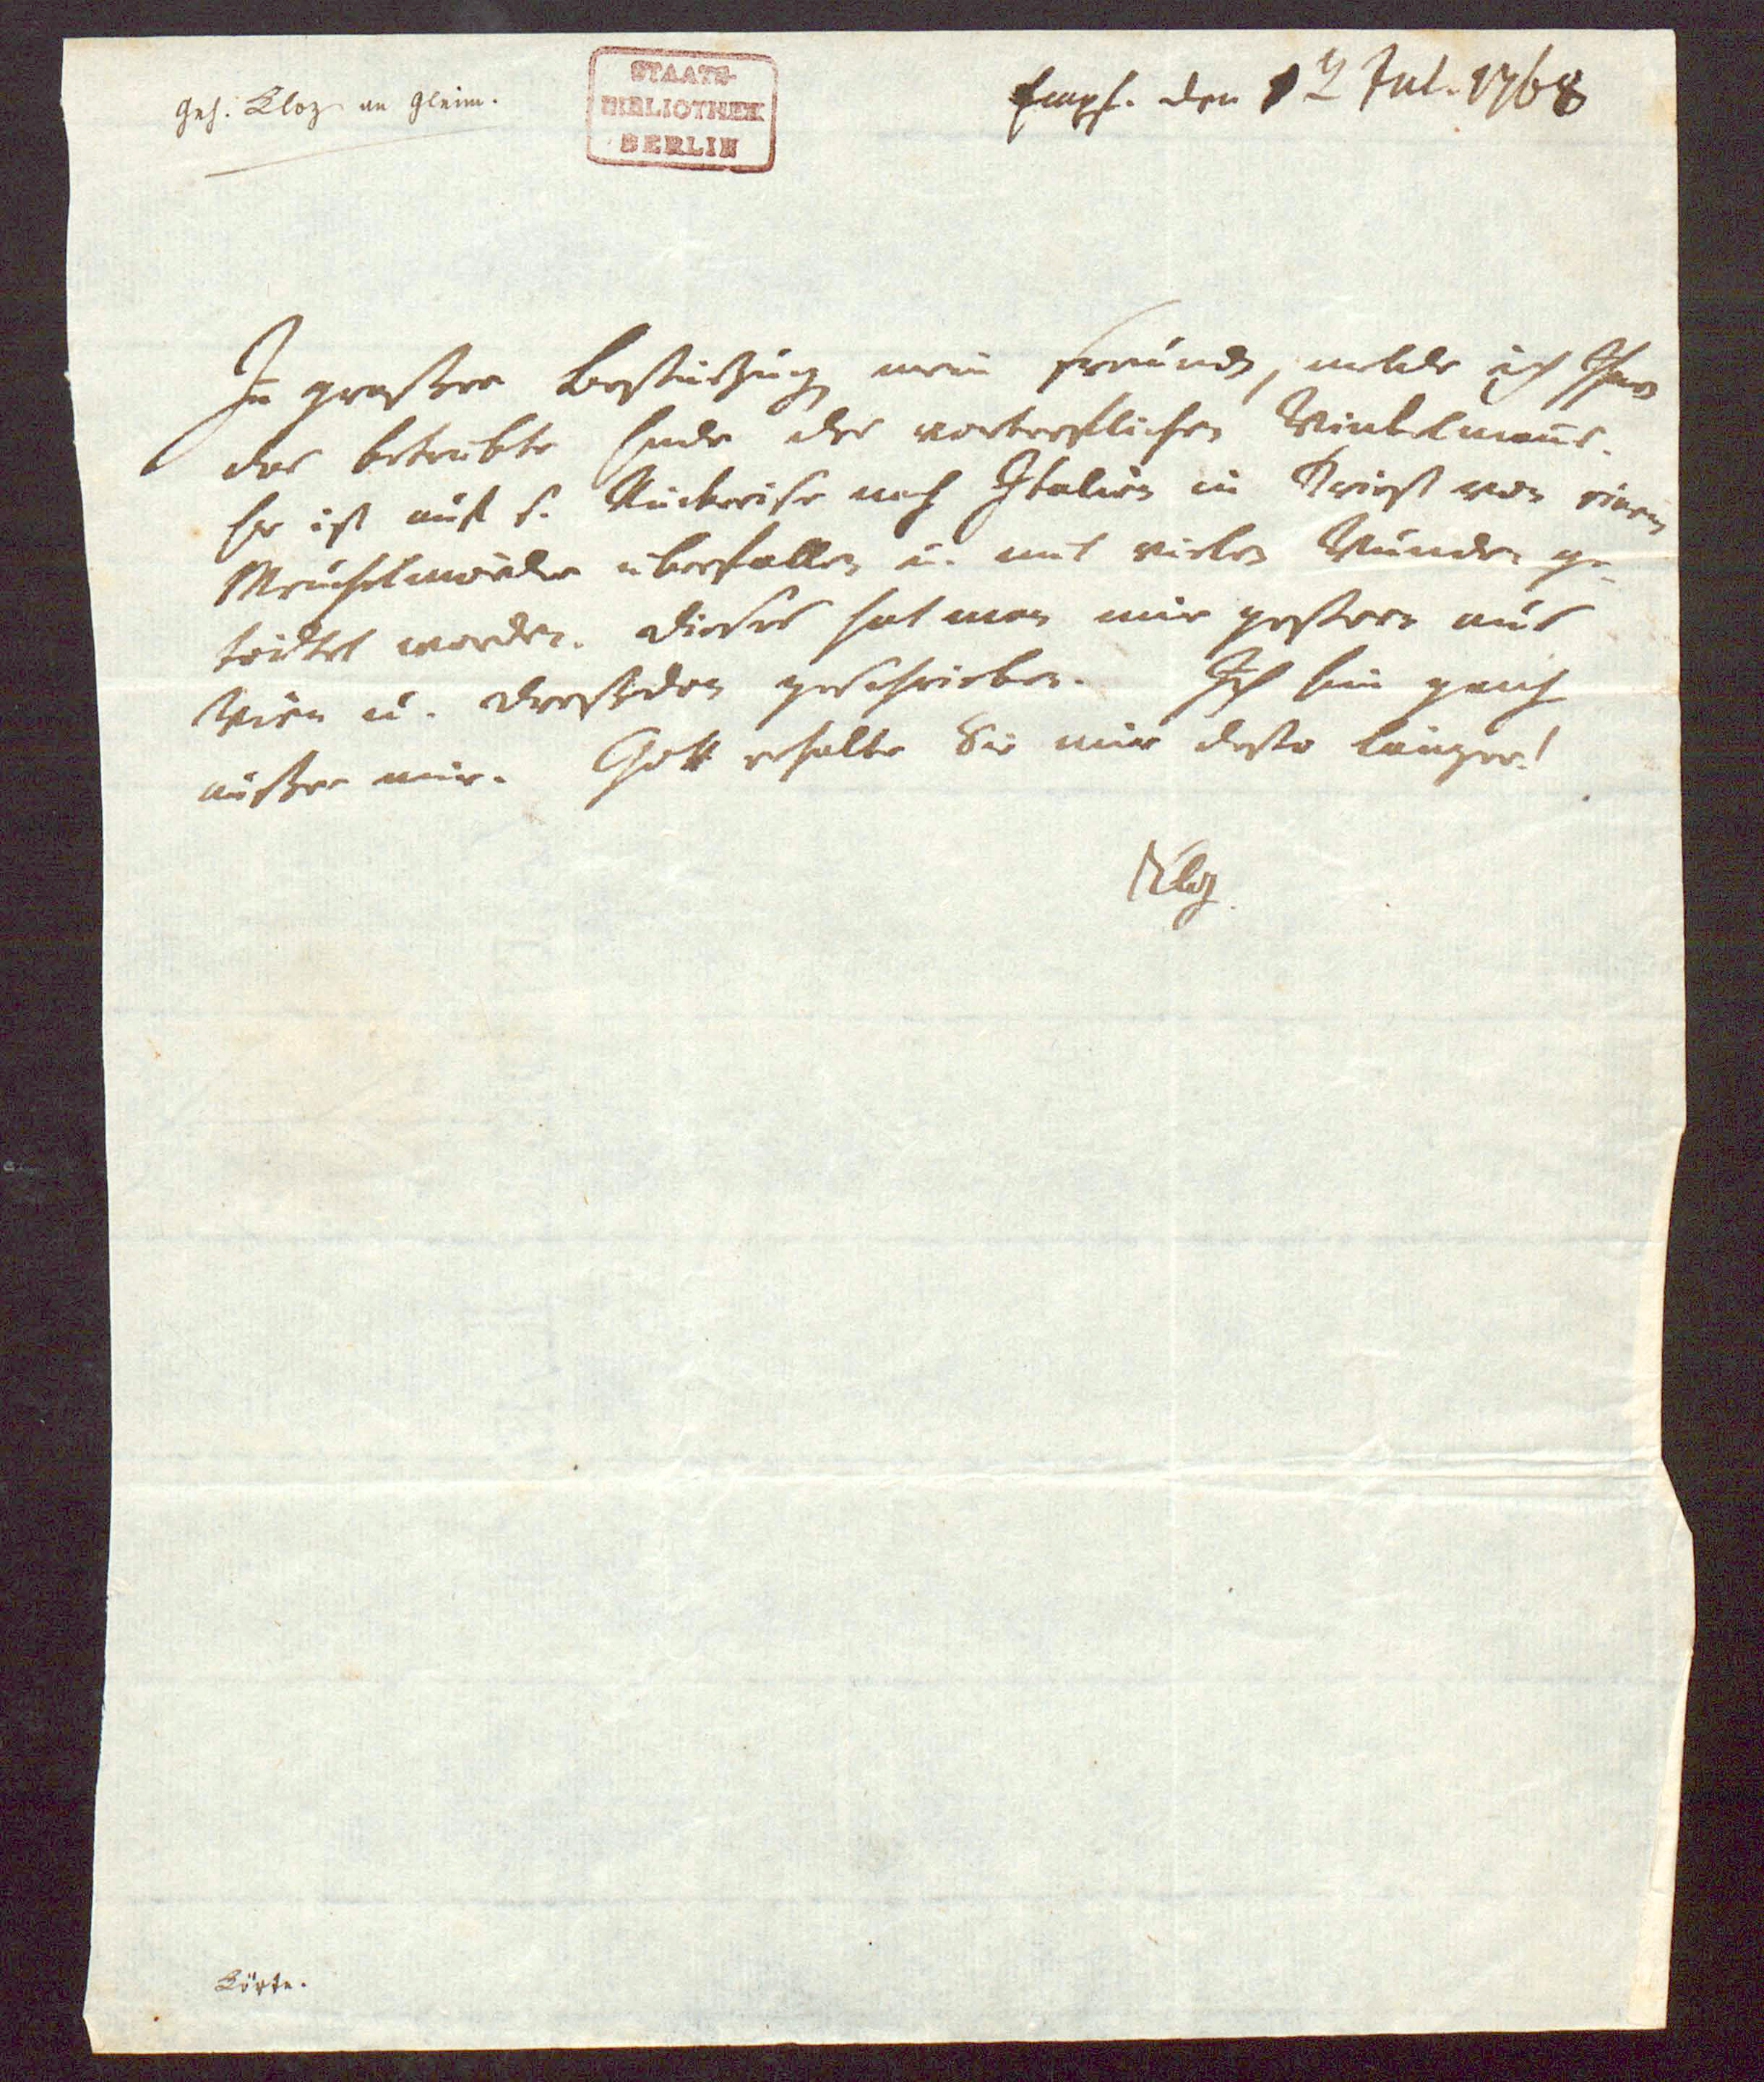 Geh. Kloz an Gleim.
STAATS-
BIBLIOTHEK
BERLIN
Empf. den 12 Jul. 1768
In großer Bestürzung mein Freund, melde ich Ihnen
das betrübte Ende des vortreflichen Winkelmans.
Er ist auf s. Rückreise nach Italien in Triest von einem
Meuchelmörder überfallen u. mit vielen Wunden ge-
tödtet worden. Dieses hat man mir gestern aus
Wien u. Dreßden geschrieben. Ich bin ganz
außer mir. Gott erhalte Sie mir desto länger!
Kloz.
Körte.